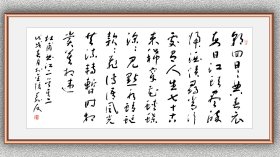 朝回日日典春衣
每日江頭盡醉
歸酒債尋常行
處有人生七十古
來稀穿花蛺蝶
深深見點水蜻蜓
款款飛傳語風光
共流轉暫時相
賞莫相違
杜甫曲江二首其二